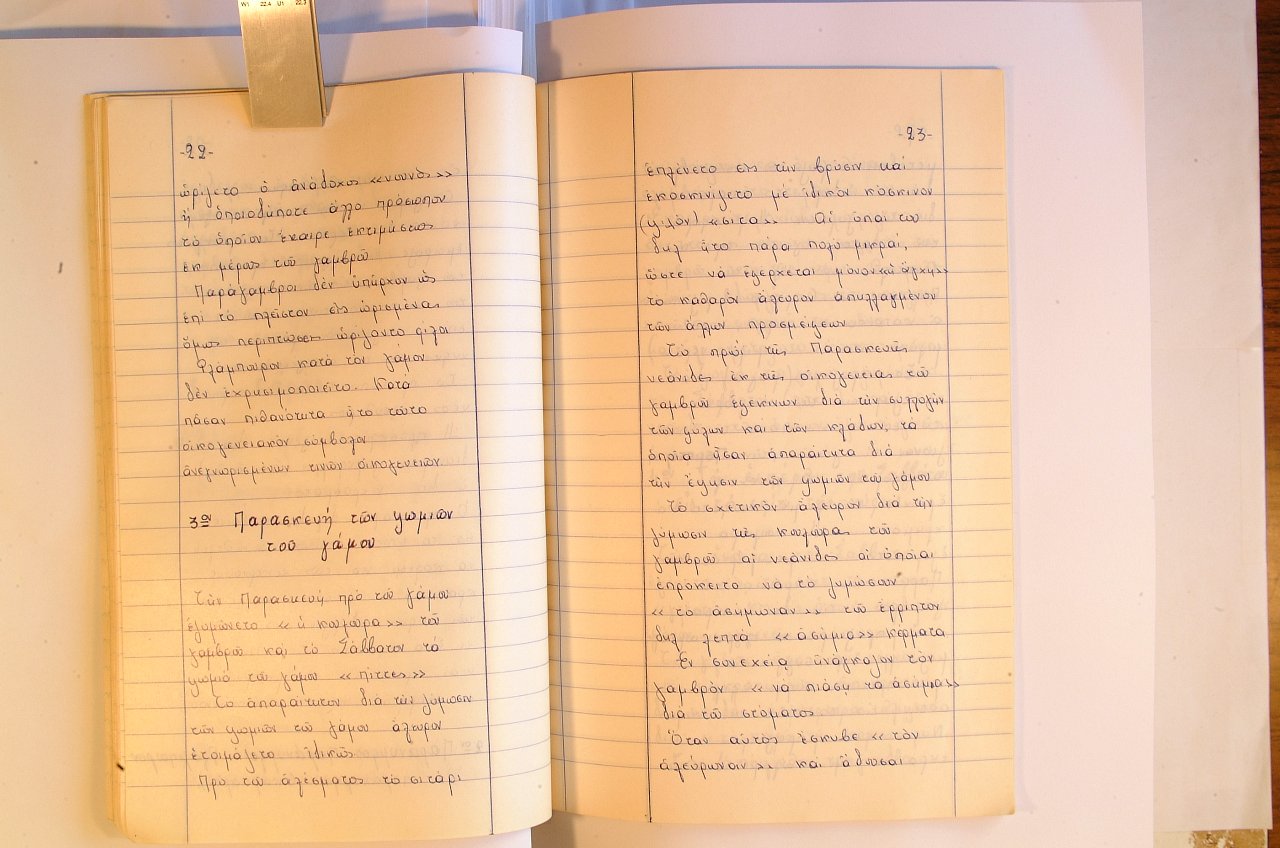 W1 22.4 U1 22.3
-22-
ὡρίζετο ὁ ἀνάδοχος «νουνὸς»
ἢ ὁποιοδήποτε ἄλλο πρόσωπον
τὸ ὁποῖον ἔχαιρε ἐκτιμήσεως
ἐκ μέρους τοῦ γαμβροῦ
Παράγαμβροι δὲν ὑπῆρχον ὡς
ἐπὶ τὸ πλεῖστον εἰς ὡρισμένας
ὅμως περιπτώσεις ὡρίζοντο φίλοι
Φλάμπουρον κατὰ τὸν γάμον
δὲν ἐχρησιμοποιεῖτο. Κατὰ
πᾶσαν πιθανότητα ἦτο τοῦτο
οἰκογενειακὸν σύμβολον
ἀνεγνωρισμένων τινῶν οἰκογενειῶν.
3ον Παρασκευή τῶν ψωμιῶν
τοῦ γάμου
Τὴν Παρασκευὴ πρὸ τοῦ γάμου
ἐζυμώνετο «ἡ κουλούρα» τοῦ
γαμβροῦ καὶ τὸ Σάββατον τὸ
ψωμιὰ τοῦ γάμου «πίττες»
Τὸ ἀπαραίτητον διὰ τὴν ζύμωσιν
τῶν ψωμιῶν τοῦ γάμου ἄλευρον
ἑτοιμάζετο ἰδικῶς
Πρὸ τοῦ ἀλέσματος τὸ σιτάρι
-23-
ἐπλένετο εἰς τὴν βρύσιν καὶ
ἐκοσκινίζετο μὲ ἰδικὸν κόσκινον
(ψιλὸν) «σίτα» Αἱ ὀπαὶ του
δηλ ἦτο πάρα πολὺ μικραί,
ὥστε νὰ ἐξέρχεται μόνον «ἡ ἄχνη»
τὸ καθαρὸν ἄλευρον ἀπηλλαγμένον
τῶν ἄλλων προσμείξεων
Τὸ πρωὶ τῆς Παρασκευῆς
νεάνιδες ἐκ τῆς οἰκογενείας τοῦ
γαμβροῦ ἐξεκίνων διὰ τὴν συλλογὴν
τῶν ξύλων καὶ τῶν κλάδων, τὰ
ὁποῖα ἦσαν ἀπαραίτητα διὰ
τὴν ἕψησιν τῶν ψωμιῶν τοῦ γάμου
Τὸ σχετικὸν ἄλευρον διὰ τὴν
ζύμωσιν τῆς κουλούρας τοῦ
γαμβροῦ αἱ νεάνιδες αἱ ὁποῖαι
ἐπρόκειτο νὰ τὸ ζυμώσουν
«τὸ ἀσήμωναν» τοῦ ἔρριπτον
δηλ λεπτὰ «ἀσήμια» κέρματα
Ἐν συνεχείᾳ ἠνάγκαζον τὸν
γαμβρὸν «νὰ πιάσῃ τὰ ἀσήμια»
διὰ τοῦ στόματος
Ὅταν αὐτὸς ἔσκυβε «τὸν
ἀλεύρωναν» καὶ ἄδουσαι